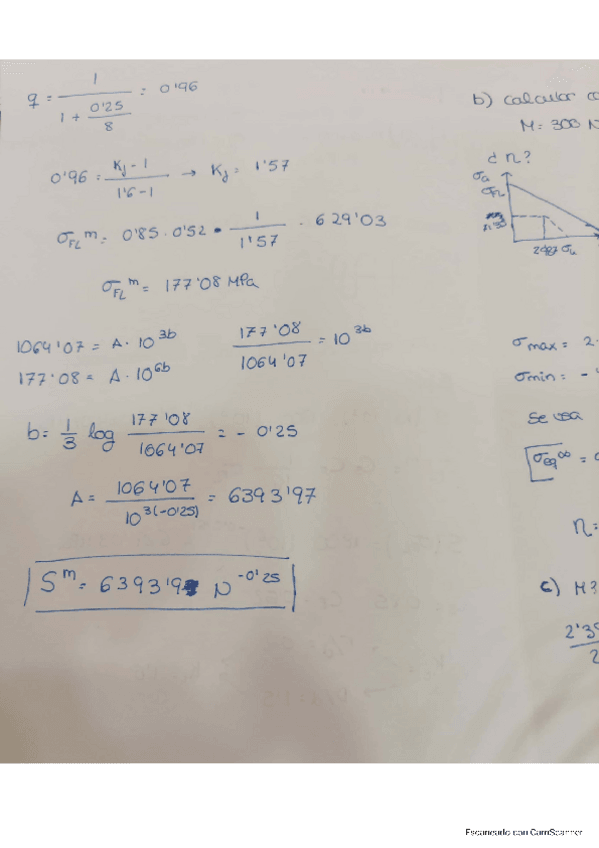 q = 1 / (1 + 0'25/8) = 0'96
0'96 = (Kf - 1) / (1'6 - 1) → Kf = 1'57
σFL^m = 0'85 · 0'52 · 1/1'57 · 629'03
σFL^m = 177'08 MPa
1064'07 = A · 10^3b
177'08 = A · 10^6b
177'08 / 1064'07 = 10^3b
b = 1/3 log 177'08 / 1064'07 = - 0'25
A = 1064'07 / 10^3(-0'25) = 6393'97
S^m = 6393'9 N^-0'25
b) calcular
M = 300 N
¿ n?
σa
σFL
σmax = 2
σmin = -
se usa
σeq^∞ =
n =
c) M?
2'39
2
Escaneado con CamScanner